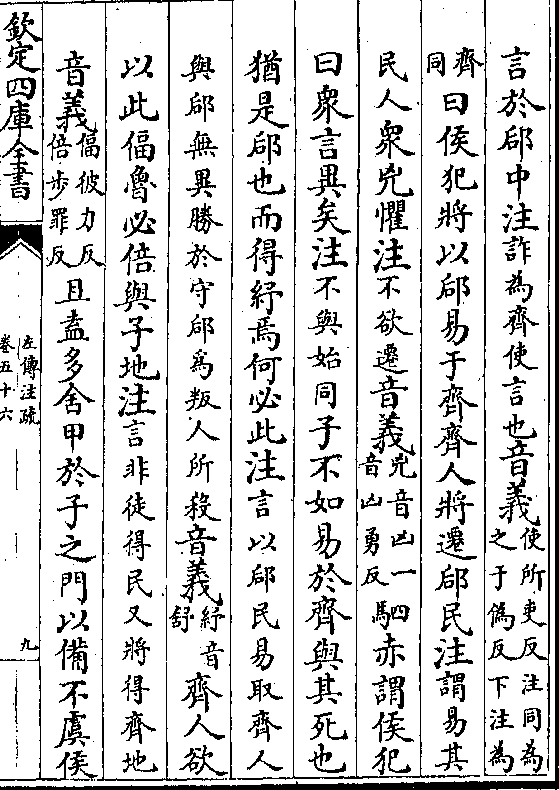 言於郈中注詐為齊使言也音義使所吏反注同為之于偽反下注為
齊同曰侯犯將以郈易于齊齊人將遷郈民注謂易其
民人衆兇懼注不欲遷音義兇音凶一音凶勇反駟赤謂侯犯
曰衆言異矣注不與始同子不如易於齊與其死也
猶是郈也而得紓焉何必此注言以郈民易取齊人
與郈無異勝於守郈為叛人所殺音義紓音舒齊人欲
以此偪魯必倍與子地注言非徒得民又將得齊地
音義偪彼力反倍步罪反且盍多舍甲於子之門以備不虞侯
欽定四庫全書
左傳注疏
卷五十六
九